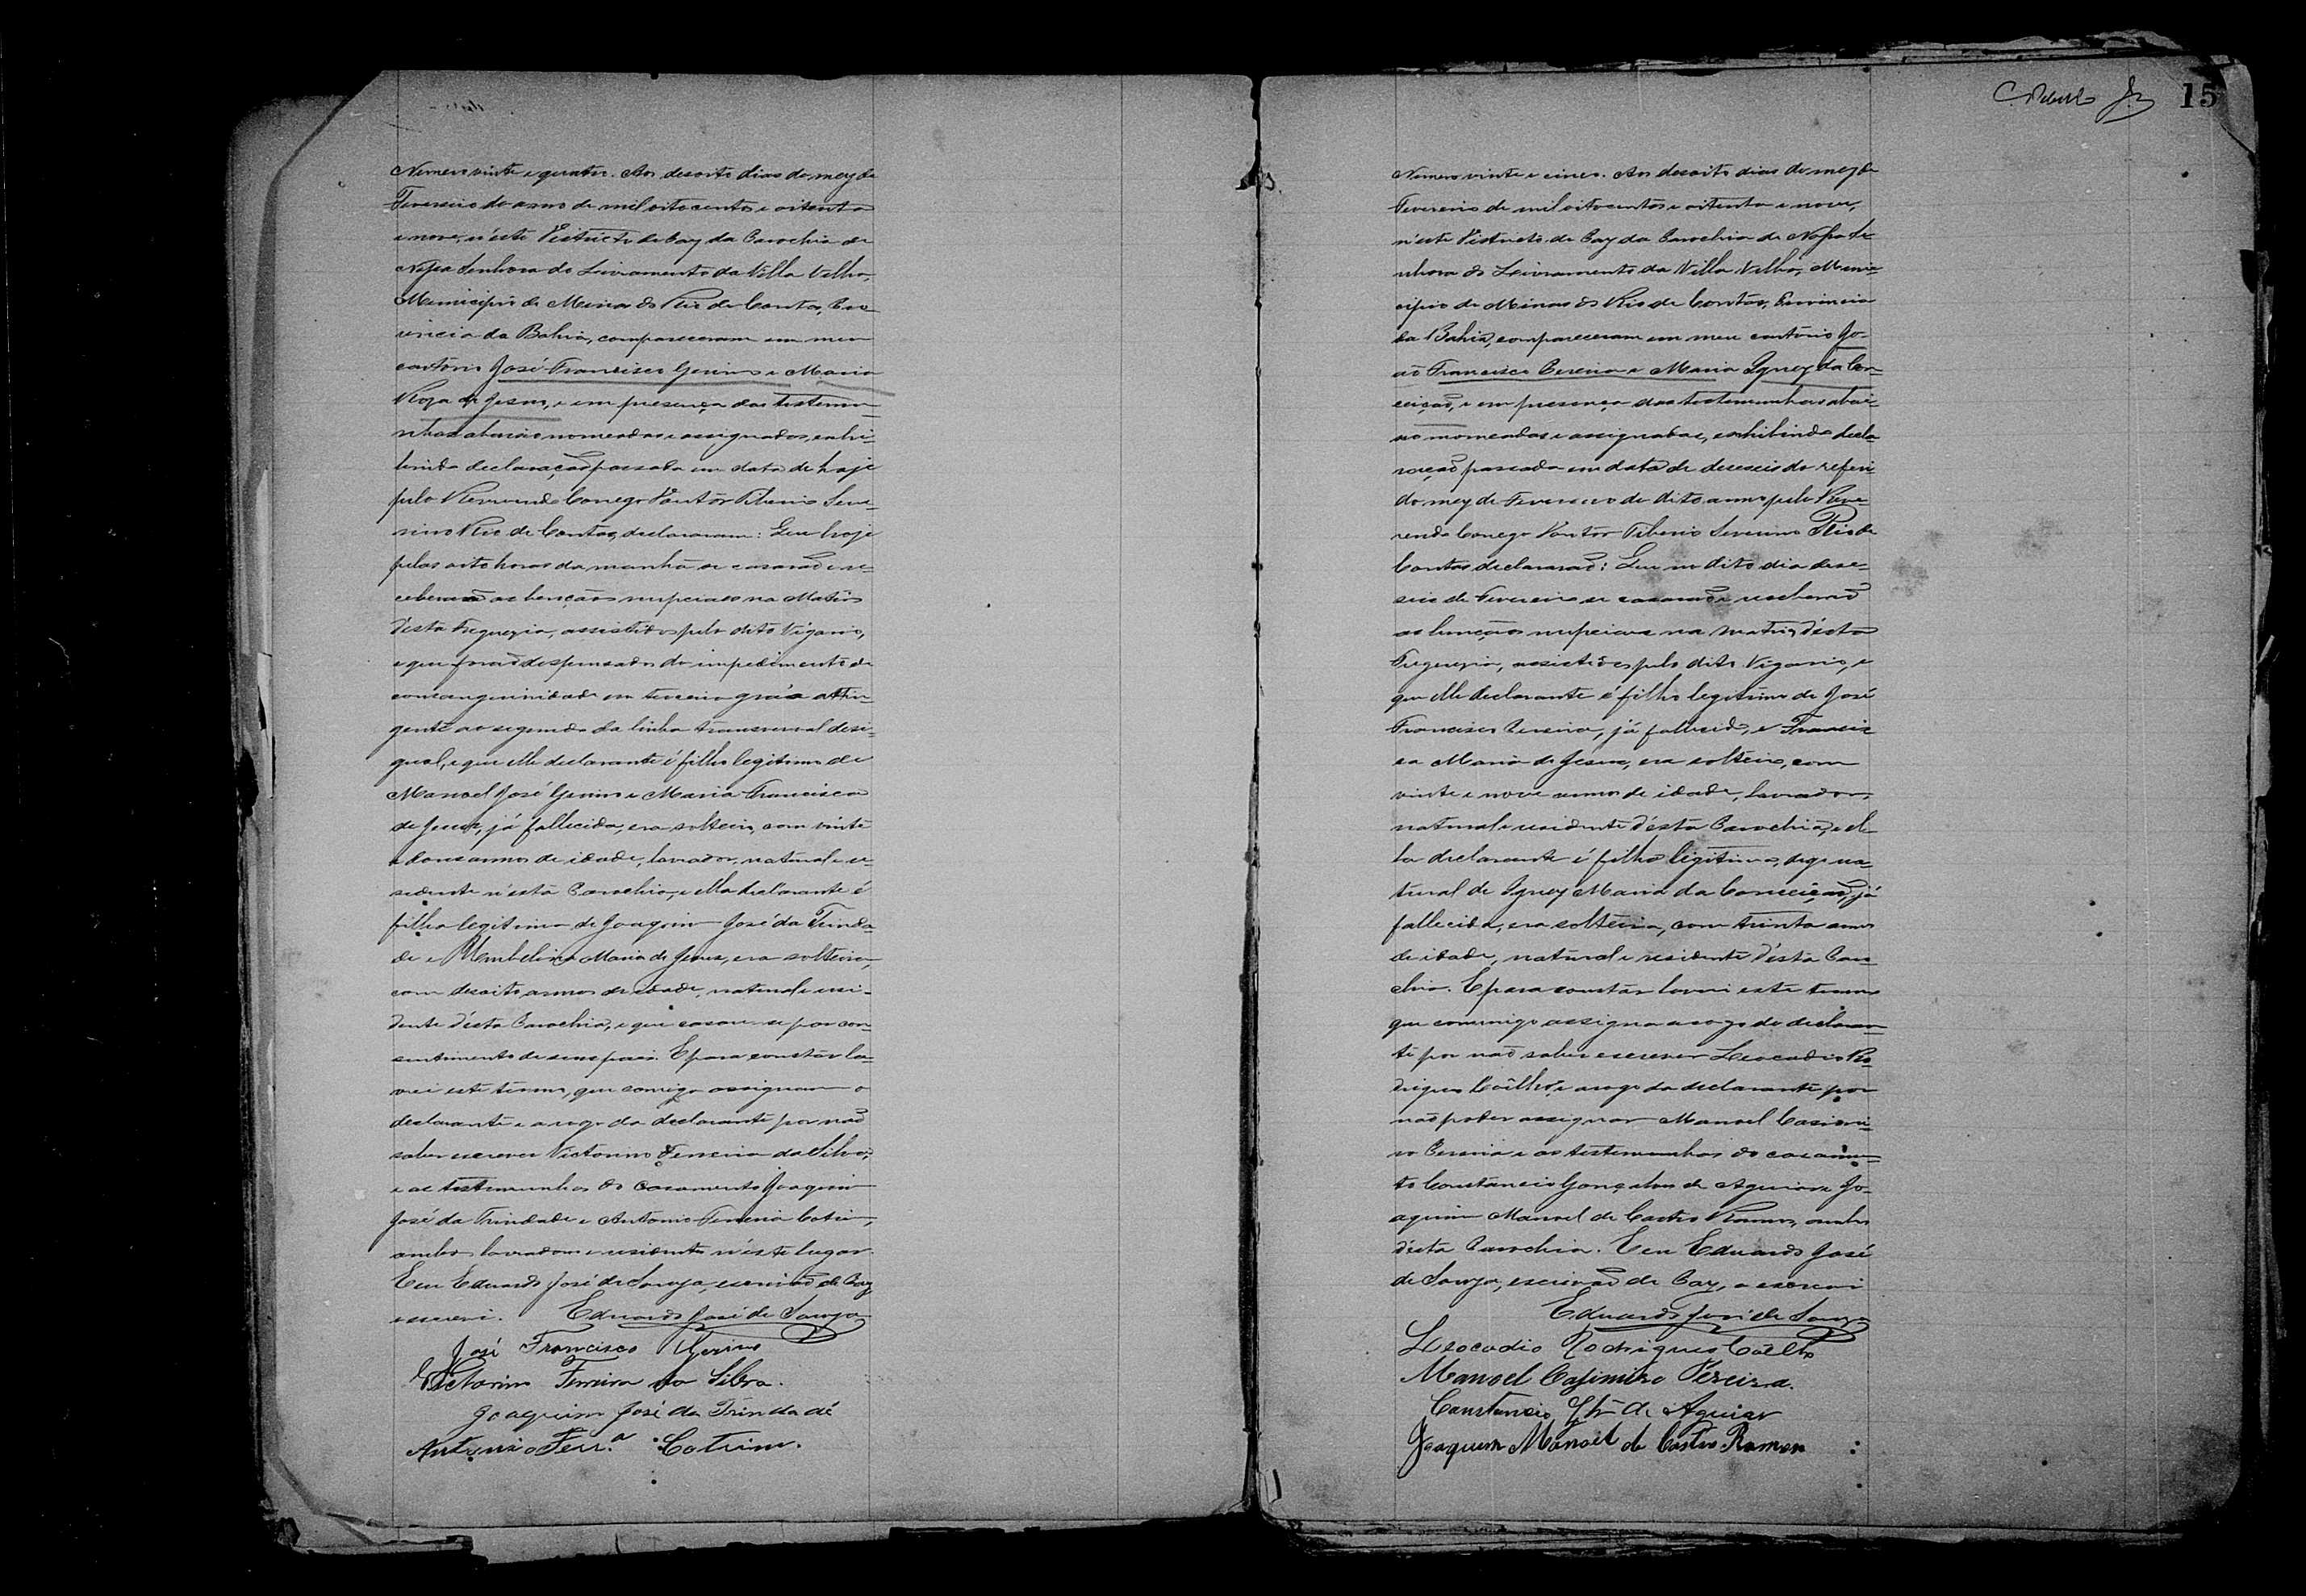 Numero vinte e quatro. Aos desoito dias do mez de
Fevereiro do anno de mil oito centos e oitenta
e nove, n'este Districto de Paz da Parochia de
Nossa Senhora do Livramento da Villa Velha,
Municipio de Minas do Rio de Contas, Pro
vincia da Bahia, compareceram em meu
cartorio José Francisco Gerino e Maria
Roza de Jesus, e em presença das testemu-
nhas abaixo nomeadas e assignadas, exhi-
bindo declaração passada em data de hoje
pelo Reverendo Conego Pastôr Tiberio Seve-
rino Rio de Contas, declararam: Que hoje
pelas oito horas da manhã se casarão e re-
ceberão as bençãos nupciaes na Matriz
d'esta Freguezia, assistidos pelo dito Vigario,
e que forão despensados do impedimento de
consanguinidade em terceiro gráo attin-
gente ao segundo da linha transversal desi-
gual, e que elle declarante é filho legitimo de
Manoel José Gerino e Maria Francisca
de Jesus, já fallecida, era solteiro, com vinte
e dous annos de idade, lavrador, natural e re-
sidente n'esta Parochia, e ella declarante é
filha legitima de Joaquim José da Trinda-
de e Umbelina Maria de Jesus, era solteira,
com desoito annos de idade, natural e resi-
dente d'esta Parochia, e que casou-se por con-
sentimento de seus paes. E para constar la-
vrei este termo, que comigo assignam o
declarante e a rogo da declarante por não
saber escrever Victorino Ferreira da Silva,
e as testemunhas do casamento Joaquim
José da Trindade e Antonio Ferreira Cotrim,
ambos lavradores e residentes n'este lugar.
E eu Eduardo José de Souza, escrivão de Paz
escrevi. Eduardo José de Souza
José Francisco Gerino
Victorino Ferreira da Silva.
Joaquim José da Trindade
Antonio Ferr.a Cotrim.
15
Numero vinte e cinco. Aos desoito dias do mez de
Fevereiro de mil oitocentos e oitenta e nove,
n'este Districto de Paz da Parochia de Nossa Se
nhora do Livramento da Villa Velha, Muni-
cipio de Minas do Rio de Contas, Provincia
da Bahia, compareceram em meu cartorio Jo-
ão Francisco Pereira e Maria Ignez da Con-
ceição, e em presença das testemunhas abai-
xo nomeadas e assignadas, exhibindo decla-
ração passada em data de deseseis do referi-
do mez de Fevereiro do dito anno pelo Reve-
rendo Conego Pastôr Tiberio Severino Rio de
Contas declararão: Que no dito dia dese-
seis de Fevereiro se casarão e receberão
as bençãos nupciaes na Matriz d'esta
Freguezia, assistidos pelo dito Vigario, e
que elle declarante é filho legitimo de José
Francisco Pereira, já fallecido, e Francis
ca Maria de Jesus, era solteiro, com
vinte e nove annos de idade, lavrador,
natural e residente d'esta Parochia, e el-
la declarante é filha legitima, digo na-
tural de Ignez Maria da Conceição, já
fallecida, era solteira, com trinta annos
de idade, natural e residente d'esta Paro
chia. E para constar lavrei este termo
que commigo assigna a rogo do declaran-
te por não saber escrever Leocadio Ro-
drigues Coêlho, e a rogo da declarante por
não poder assignar Manoel Casimi-
ro Pereira e as testemunhas do casamen-
to Constancio Gonçalves de Aguiar e Jo-
aquim Manoel de Castro Ramos, ambos
d'esta Parochia. E eu Eduardo José
de Souza, escrivão de Paz, o escrevi
Eduardo José de Souza
Leocadio Rodrigues Coêlho
Manoel Casimiro Pereira.
Constancio Glz de Aguiar
Joaquim Manoel de Castro Ramos